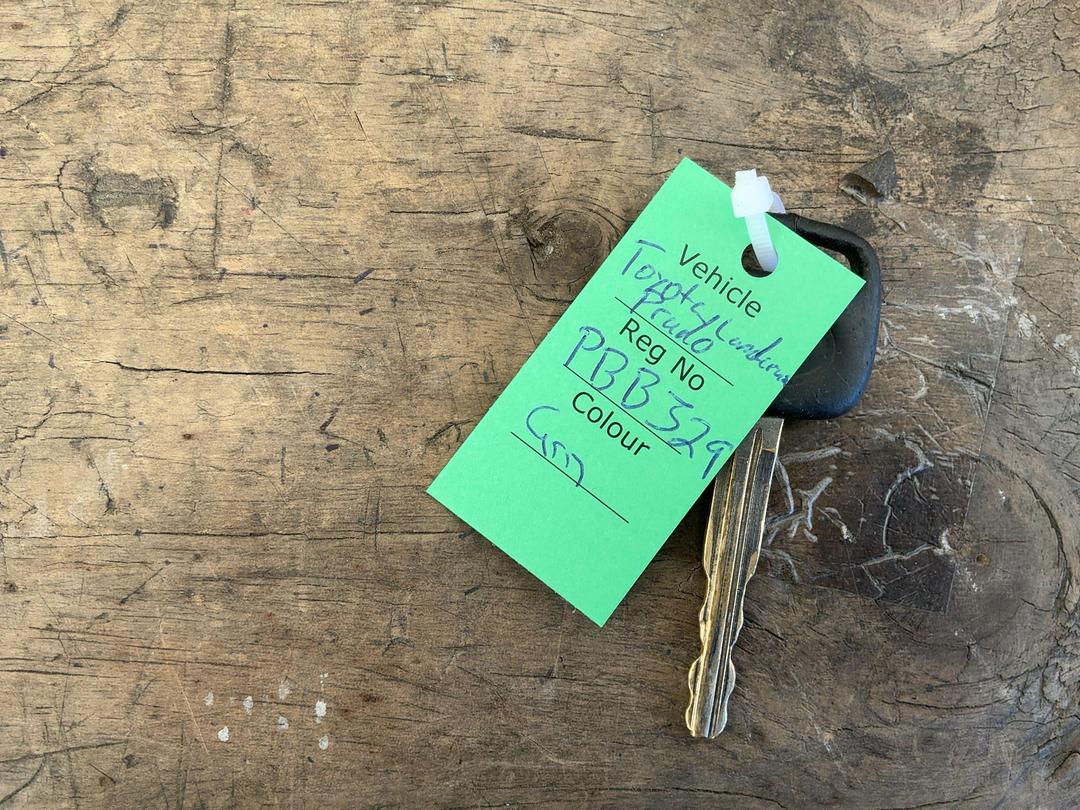 Vehicle
Toyota Landcruiser
Prado
Reg No
PBB329
Colour